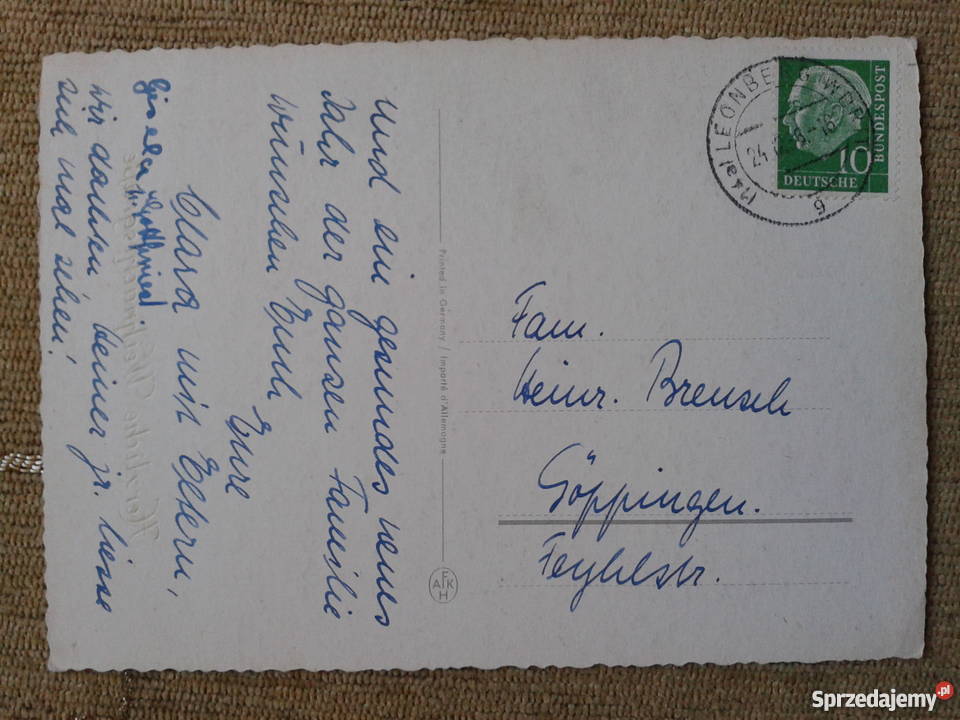 und ein gesundes neues
Jahr der ganzen Familie
Wünschen Euch
Eure
Clara mit Eltern,
Gisela u. Gottfried.
wir danken
sich mal sehen!
Printed in Germany / Importé d'Allemagne
AFKH
LEONBERG
24
b
10
DEUTSCHE
BUNDESPOST
Fam.
Heinr. Brensch
Göppingen.
Sprzedajemy.pl